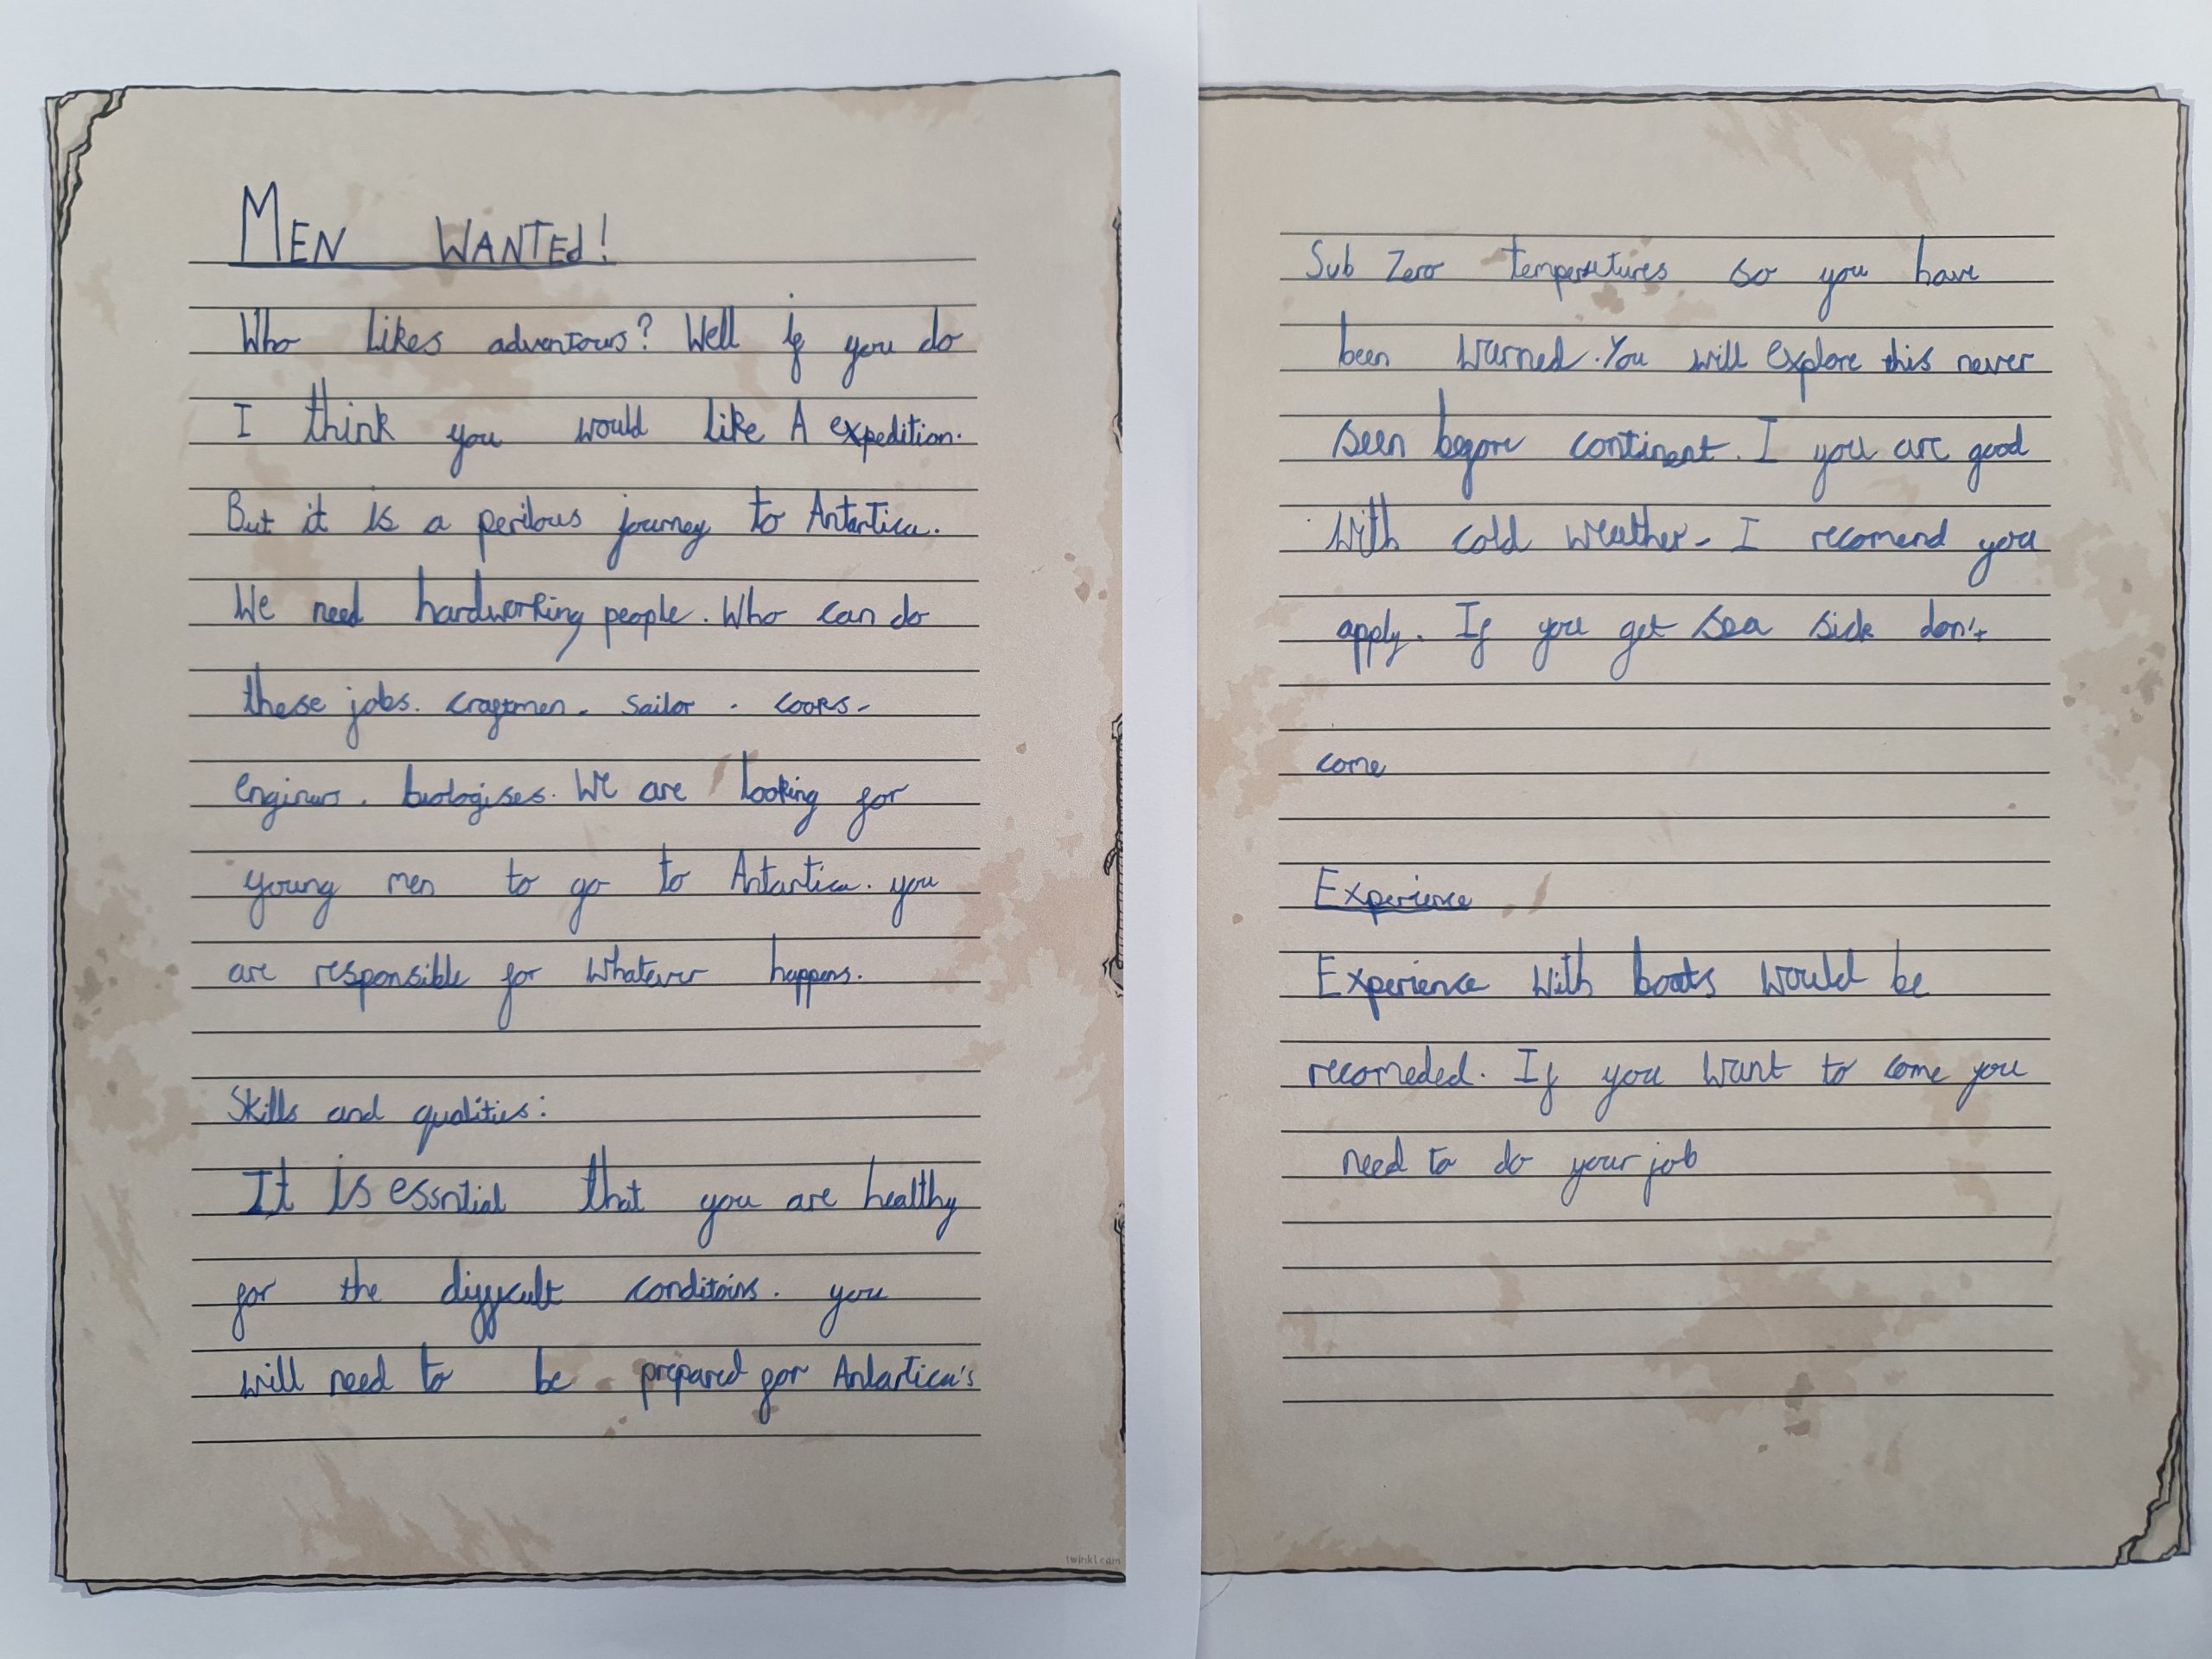 MEN WANTEd!
Who likes adventours? Well if you do
I think you would like A expedition.
But it is a perilous journey to Antartica.
We need hardworking people. Who can do
these jobs. craftmen. sailor . cooks.
engineurs. biologises. We are looking for
young men to go to Antartica. you
are responsible for whatever happens.
Skills and qualities:
It is essntial that you are healthy
for the difficult conditoins. you
will need to be prepared for Antartica's
twinkl.com
Sub Zero temperetures so you have
been warned. You will explore this never
seen before continent. I you are good
with cold weather. I recomend you
apply. If you get sea sick don't
come
Experience
Experience with boats would be
recomeded. If you want to come you
need to do your job